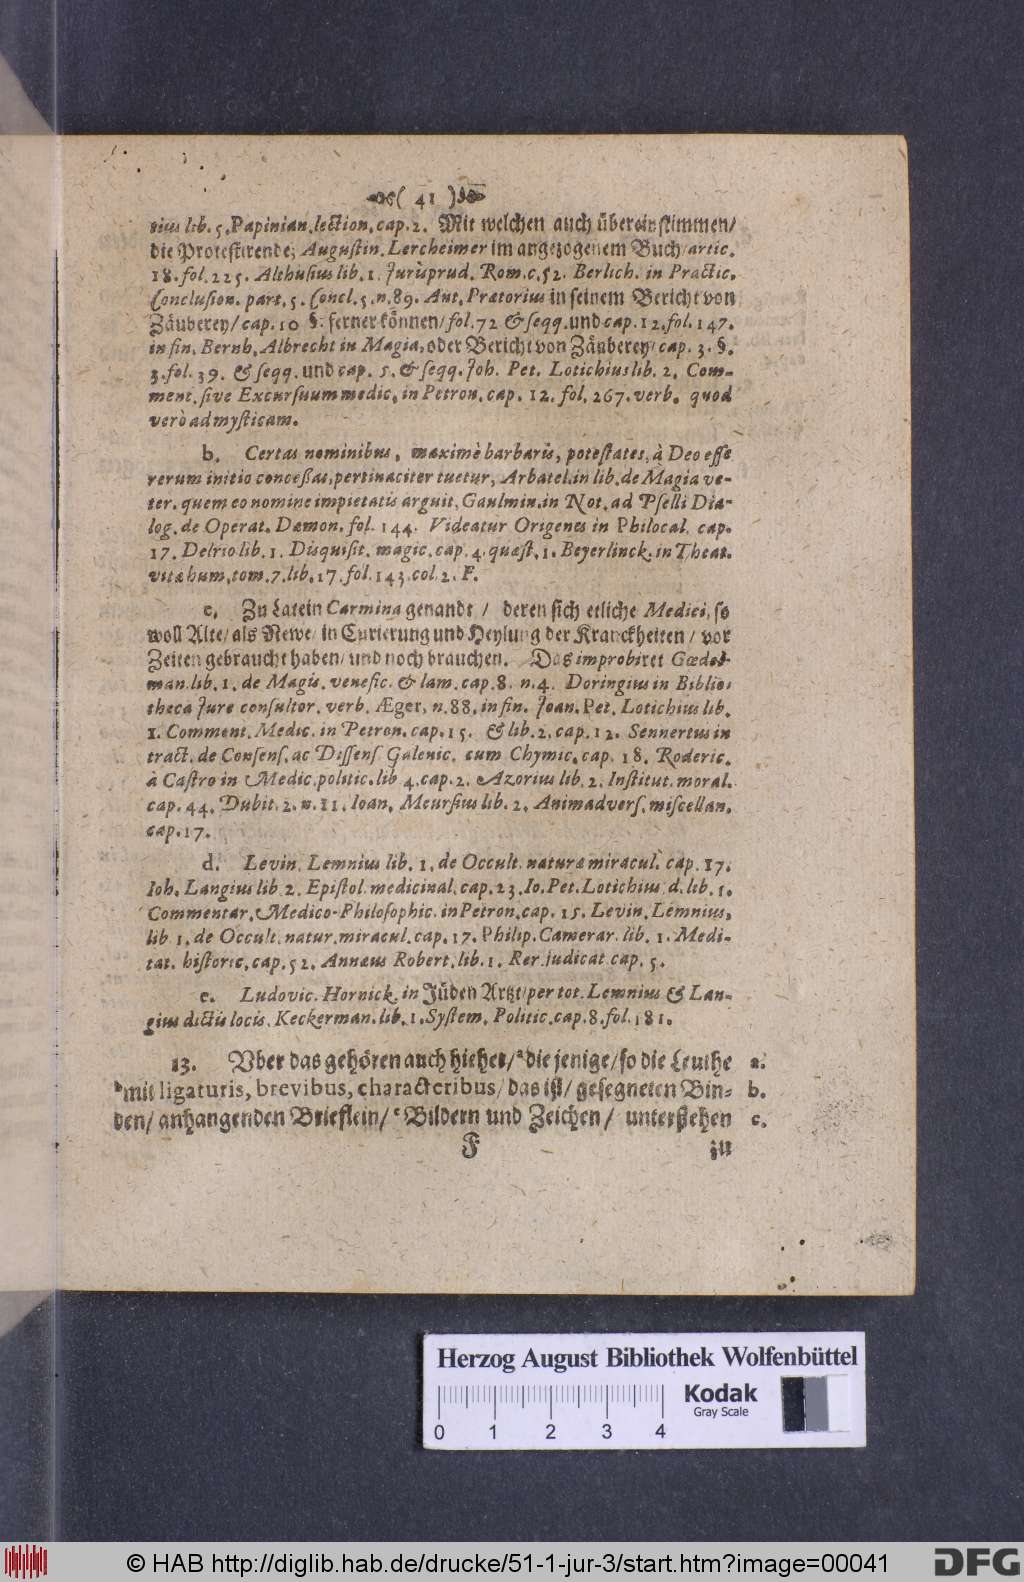 ( 41 )
sius lib. 5. Papinian. lection. cap. 2. Mit welchen auch übereinstimmen/
die Protestirende, Augustin. Lercheimer im angezogenem Buch/ artic.
18. fol. 225. Althusius lib. 1. Jurisprud. Rom. c. 52. Berlich. in Practic.
Conclusion. part. 5. Concl. 5. n. 89. Ant. Prætorius in seinem Bericht von
Zäuberey/ cap. 10 §. ferner können/ fol. 72 & seqq. und cap. 12. fol. 147.
in fin. Bernh. Albrecht in Magia, oder Bericht von Zäuberey/ cap. 3. §.
3. fol. 39. & seqq. und cap. 5. & seqq. Joh. Pet. Lotichius lib. 2. Com-
ment. sive Excursuum medic. in Petron. cap. 12. fol. 267. verb. quod
verò ad mysticam.
b. Certas nominibus, maximè barbaris, potestates, à Deo esse
rerum initio conceßas, pertinaciter tuetur, Arbatel. in lib. de Magia ve-
ter. quem eo nomine impietatis arguit, Gaulmin. in Not. ad Pselli Dia-
log. de Operat. Dæmon. fol. 144. Videatur Origenes in Philocal. cap.
17. Delrio lib. 1. Disquisit. magic. cap. 4. quæst. 1. Beyerlinck. in Theat.
vitæ hum. tom. 7. lib. 17. fol. 143. col. 2. F.
c. Zu Latein Carmina genandt / deren sich etliche Medici, so
woll Alte/ als Newe/ in Curierung und Heylung der Kranckheiten / vor
Zeiten gebraucht haben/ und noch brauchen. Das improbiret Gœdel-
man. lib. 1. de Magis. venefic. & lam. cap. 8. n. 4. Doringius in Biblio-
theca Jure consultor. verb. Æger, n. 88. in fin. Joan. Pet. Lotichius lib.
1. Comment. Medic. in Petron. cap. 15. & lib. 2. cap. 12. Sennertus in
tract. de Consens. ac Dissens Galenic. cum Chymic. cap. 18. Roderic.
à Castro in Medic. politic. lib 4. cap. 2. Azorius lib. 2. Institut. moral.
cap. 44. Dubit. 2. n. 11. Ioan. Meursius lib. 2. Animadvers. miscellan.
cap. 17.
d. Levin. Lemnius lib. 1. de Occult. naturæ miracul. cap. 17.
Ioh. Langius lib. 2. Epistol. medicinal. cap. 23. Io. Pet. Lotichius d. lib. 1.
Commentar. Medico-Philosophic. in Petron. cap. 15. Levin. Lemnius,
lib. 1. de Occult. natur. miracul. cap. 17. Philip. Camerar. lib. 1. Medi-
tat. historic. cap. 52. Annæus Robert. lib. 1. Rer. judicat. cap. 5.
e. Ludovic. Hornick. in Jüden Artzt/ per tot. Lemnius & Lan-
gius dictis locis. Keckerman. lib. 1. System. Politic. cap. 8. fol. 181.
13. Vber das gehören auch hieher/ ᵃ die jenige/ so die Leuthe a.
ᵇ mit ligaturis, brevibus, characteribus/ das ist/ gesegneten Bin- b.
den/ anhangenden Brieflein/ ᶜ Bildern und Zeichen / unterstehen c.
F zu
Herzog August Bibliothek Wolfenbüttel
Kodak
Gray Scale
0 1 2 3 4
© HAB http://diglib.hab.de/drucke/51-1-jur-3/start.htm?image=00041
DFG